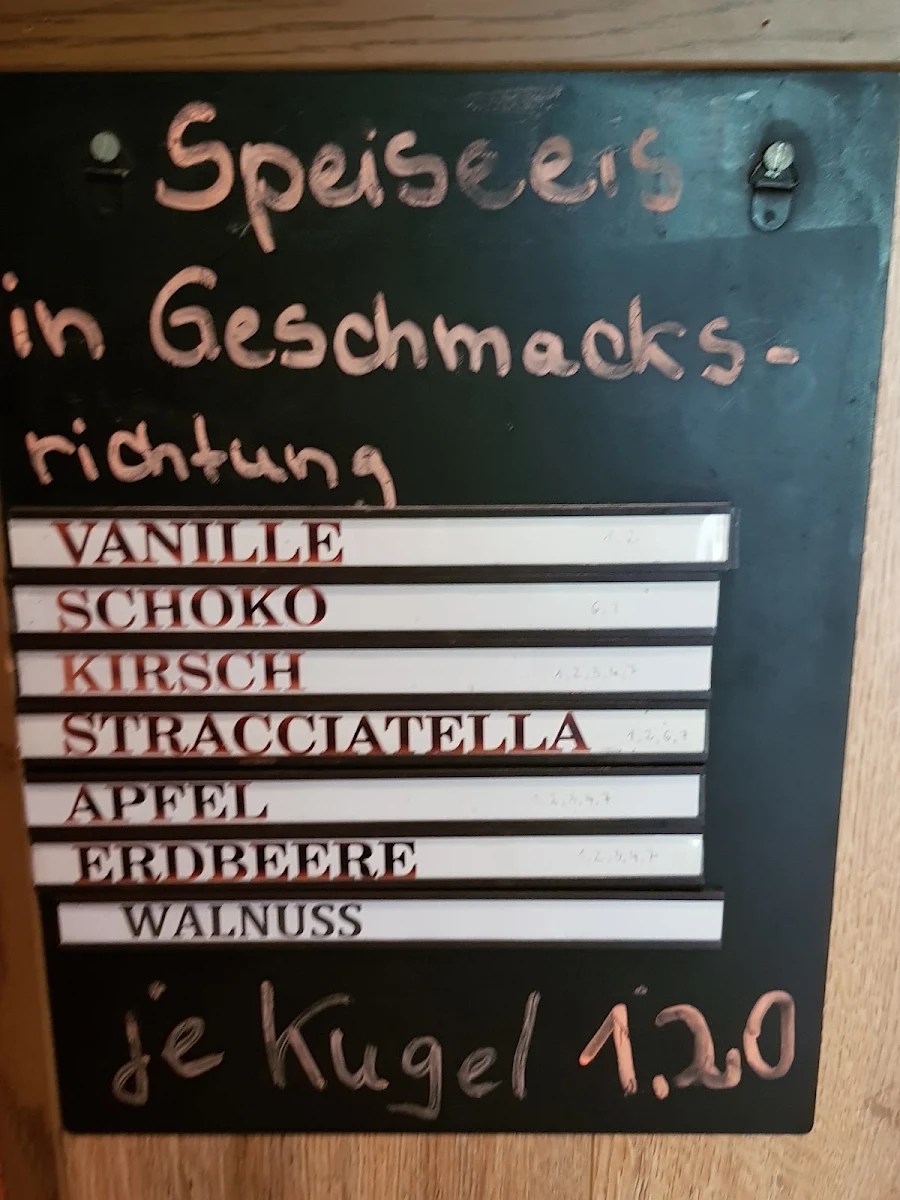 Speiseeis
in Geschmacks-
richtung
VANILLE 1,2
SCHOKO
KIRSCH 1,2,3,4,7
STRACCIATELLA 1,2,6,7
APFEL 1,2,3,4,7
ERDBEERE 1,2,3,4,7
WALNUSS
je Kugel 1.20